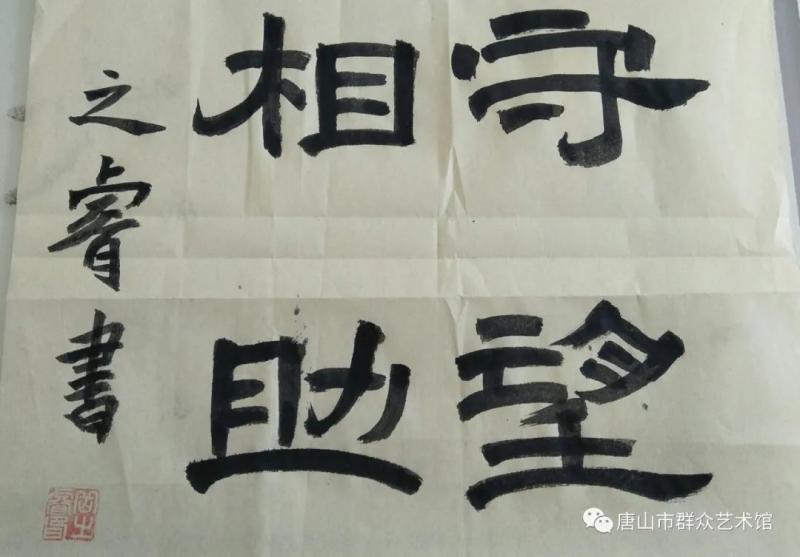 守望
相助
之睿書
唐山市群众艺术馆